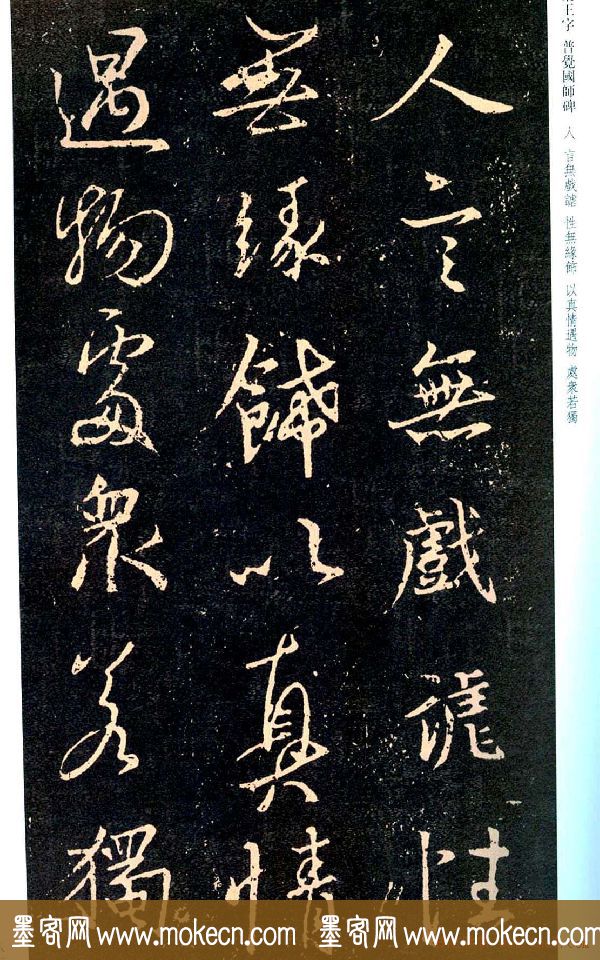 人言無戲謔性
無緣飾以真情
遇物處衆若獨
王字 普覺國師碑 人 言無戲謔 性無緣飾 以真情遇物 處衆若獨
墨客网 www.mokecn.com 墨客网 www.mokecn.com 墨客网 www.mokecn.com